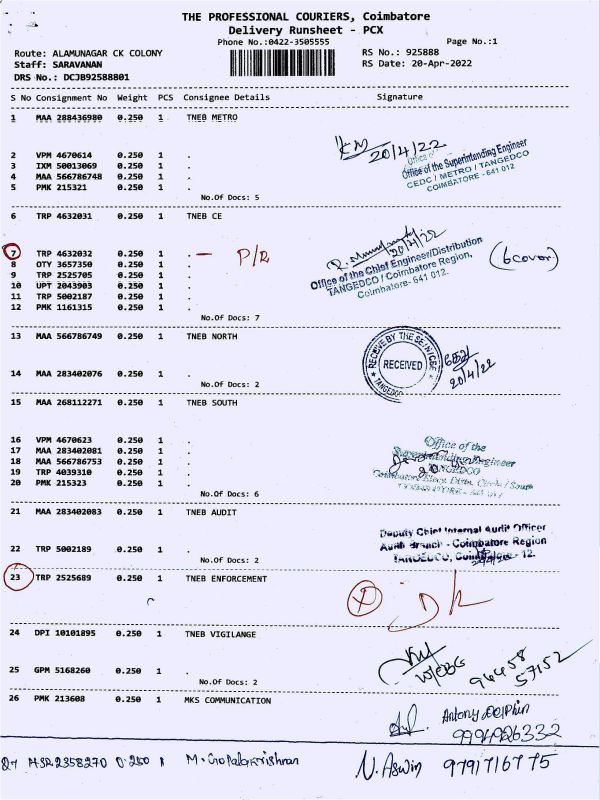 THE PROFESSIONAL COURIERS, Coimbatore
Delivery Runsheet - PCX
Phone No.:0422-3505555
Page No.:1
Route: ALAMUNAGAR CK COLONY
RS No.: 925888
Staff: SARAVANAN
RS Date: 20-Apr-2022
DRS No.: DCJB92588801
S No Consignment No Weight PCS Consignee Details Signature
1 MAA 288436980 0.250 1 TNEB METRO
20/4/22
Office of the Superintending Engineer
CEDC / METRO / TANGEDCO
COIMBATORE - 641 012
2 VPM 4670614 0.250 1 .
3 IXM 50013069 0.250 1 .
4 MAA 566786748 0.250 1 .
5 PMK 215321 0.250 1 .
No.Of Docs: 5
6 TRP 4632031 0.250 1 TNEB CE
20/4/22
Office of the Chief Engineer/Distribution
TANGEDCO / Coimbatore Region,
Coimbatore- 641 012.
(6cover)
7 TRP 4632032 0.250 1 . - P/R
8 OTY 3657350 0.250 1 .
9 TRP 2525705 0.250 1 .
10 UPT 2043903 0.250 1 .
11 TRP 5002187 0.250 1 .
12 PMK 1161315 0.250 1 .
No.Of Docs: 7
13 MAA 566786749 0.250 1 TNEB NORTH
RECEIVED
TANGEDCO
20/4/22
14 MAA 283402076 0.250 1 .
No.Of Docs: 2
15 MAA 268112271 0.250 1 TNEB SOUTH
16 VPM 4670623 0.250 1 .
17 MAA 283402081 0.250 1 .
18 MAA 566786753 0.250 1 .
19 TRP 4039310 0.250 1 .
20 PMK 215323 0.250 1 .
No.Of Docs: 6
Office of the
Superintending Engineer
21 MAA 283402083 0.250 1 TNEB AUDIT
Deputy Chief Internal Audit Officer
Audit Branch - Coimbatore Region
TANGEDCO, Coimbatore - 12.
22 TRP 5002189 0.250 1 .
No.Of Docs: 2
23 TRP 2525689 0.250 1 TNEB ENFORCEMENT
24 DPI 10101895 0.250 1 TNEB VIGILANGE
96458
57152
25 GPM 5168260 0.250 1 .
No.Of Docs: 2
26 PMK 213608 0.250 1 MKS COMMUNICATION
Antony Delphin
9994926332
27 HSR 2358270 0.250 1 M. Gopalakrishnan N. Aswin 9791716775